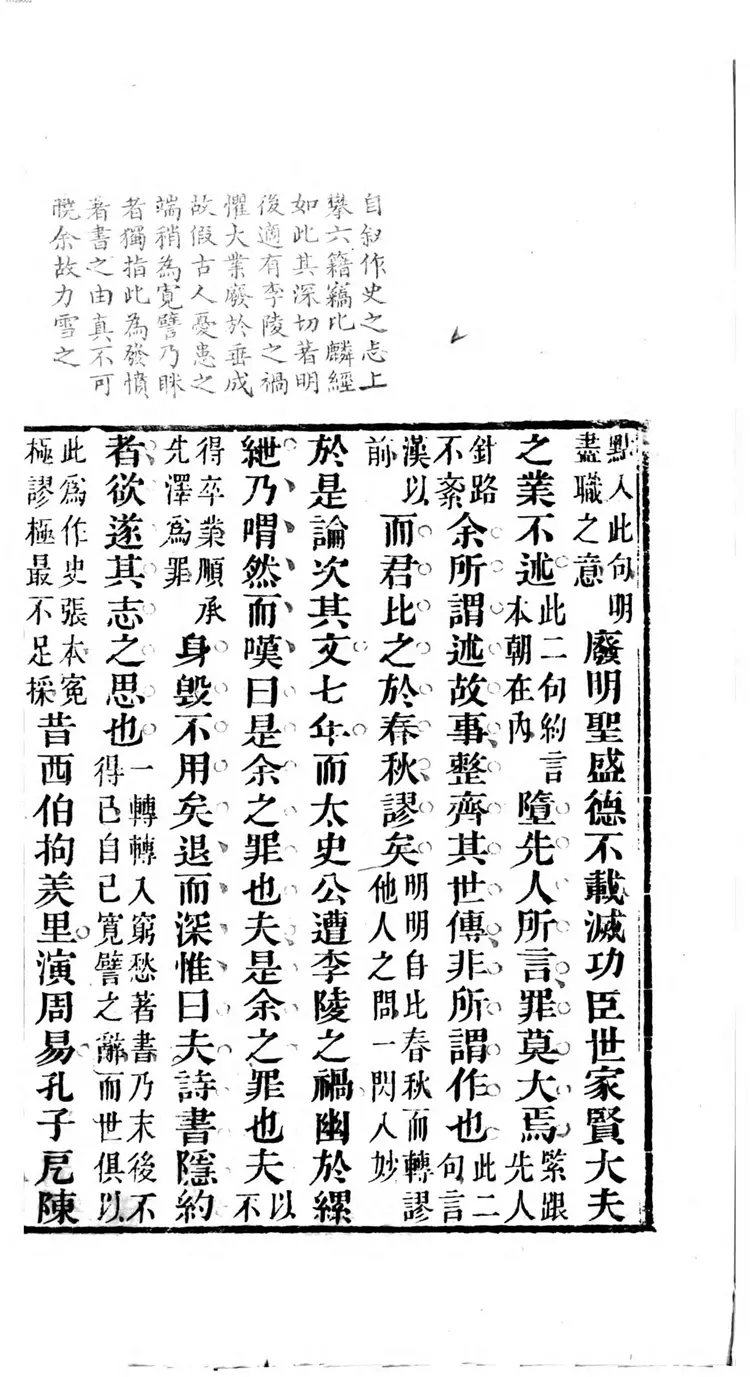 自叙作史之志上
攀六籍竊比麟經
如此其深切著明
後適有李陵之禍
懼大業廢於垂成
故假古人憂患之
端稍為寬譬乃眯
者獨指此為發憤
著書之由真不可
曉余故力雪之
點入此句明盡職之意廢明聖盛德不載滅功臣世家賢大夫
之業不述此二句約言本朝在內墮先人所言罪莫大焉緊跟先人
針路不紊余所謂述故事整齊其世傳非所謂作也此二句言
漢以前而君比之於春秋謬矣明明自比春秋而轉謬他人之問一閃入妙
於是論次其文七年而太史公遭李陵之禍幽於縲
紲乃喟然而嘆曰是余之罪也夫是余之罪也夫以不
得卒業順承先澤爲罪身毀不用矣退而深惟曰夫詩書隱約
者欲遂其志之思也一轉轉入窮愁著書乃末後不得已自己寬譬之辭而世俱以
此爲作史張本寃極謬極最不足採昔西伯拘羑里演周易孔子戹陳